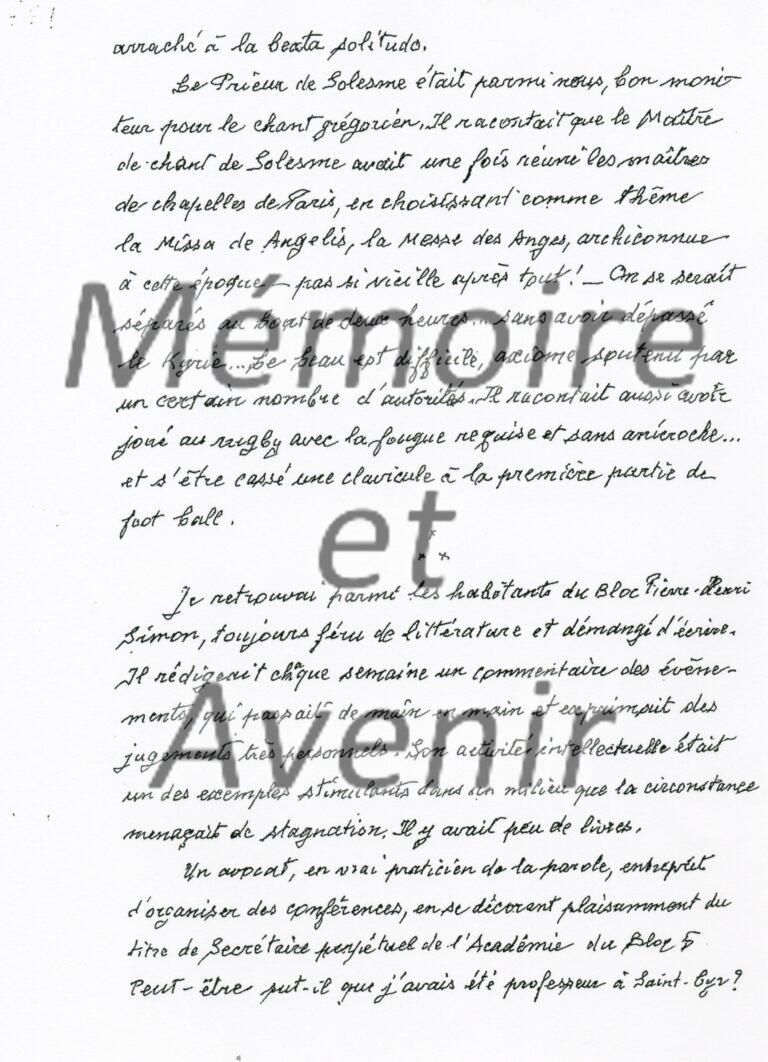 arraché à la beata solitudo.
Le Prieur de Solesme était parmi nous, bon moni-
teur pour le chant grégorien. Il racontait que le Maître
de chant de Solesme avait une fois réuni les maîtres
de chapelles de Paris, en choisissant comme thème
la Missa de Angelis, la Messe des Anges, archiconnue
à cette époque - pas si vieille après tout! - On se serait
séparés au bout de deux heures... sans avoir dépassé
le Kyrie... Le beau est difficile, axiome soutenu par
un certain nombre d'autorités. Il racontait aussi avoir
joué au rugby avec la fougue requise et sans anicroche...
et s'être cassé une clavicule à la première partie de
foot ball.
Je retrouvai parmi les habitants du Bloc Pierre-Henri
Simon, toujours féru de littérature et démangé d'écrire.
Il rédigeait chaque semaine un commentaire des évène-
ments, qui passait de main en main et exprimait des
jugements très personnels. Son activité intellectuelle était
un des exemples stimulants dans un milieu que la circonstance
menaçait de stagnation. Il y avait peu de livres.
Un avocat, en vrai praticien de la parole, entreprit
d'organiser des conférences, en se décorant plaisamment du
titre de Secrétaire perpétuel de l'Académie du Bloc 5
Peut-être sut-il que j'avais été professeur à Saint-Cyr?
Mémoire
et
Avenir